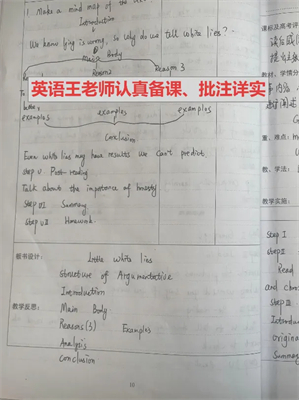 1. Make a mind map of the
Introduction
We know lying is wrong, so why do we tell white lies?
Main Body
Reasons
Reason 3
英语王老师认真备课、批注详实
examples examples examples
Conclusion
Even white lies may have results we can't predict.
Step V Post-reading
Talk about the importance of honesty
Step VI Summary
Step VII Homework.
板书设计:
Little white lies
Structure of Argumentative
Introduction
教学反思:
Main Body
Reasons (3) Examples
Analysis
Conclusion
10
课标及高考评
教材、学情分
重、难点:
教学、学法:
教学实施:
Step I
Step II
Read
and choo
Step III
Introdu
origina
Summary